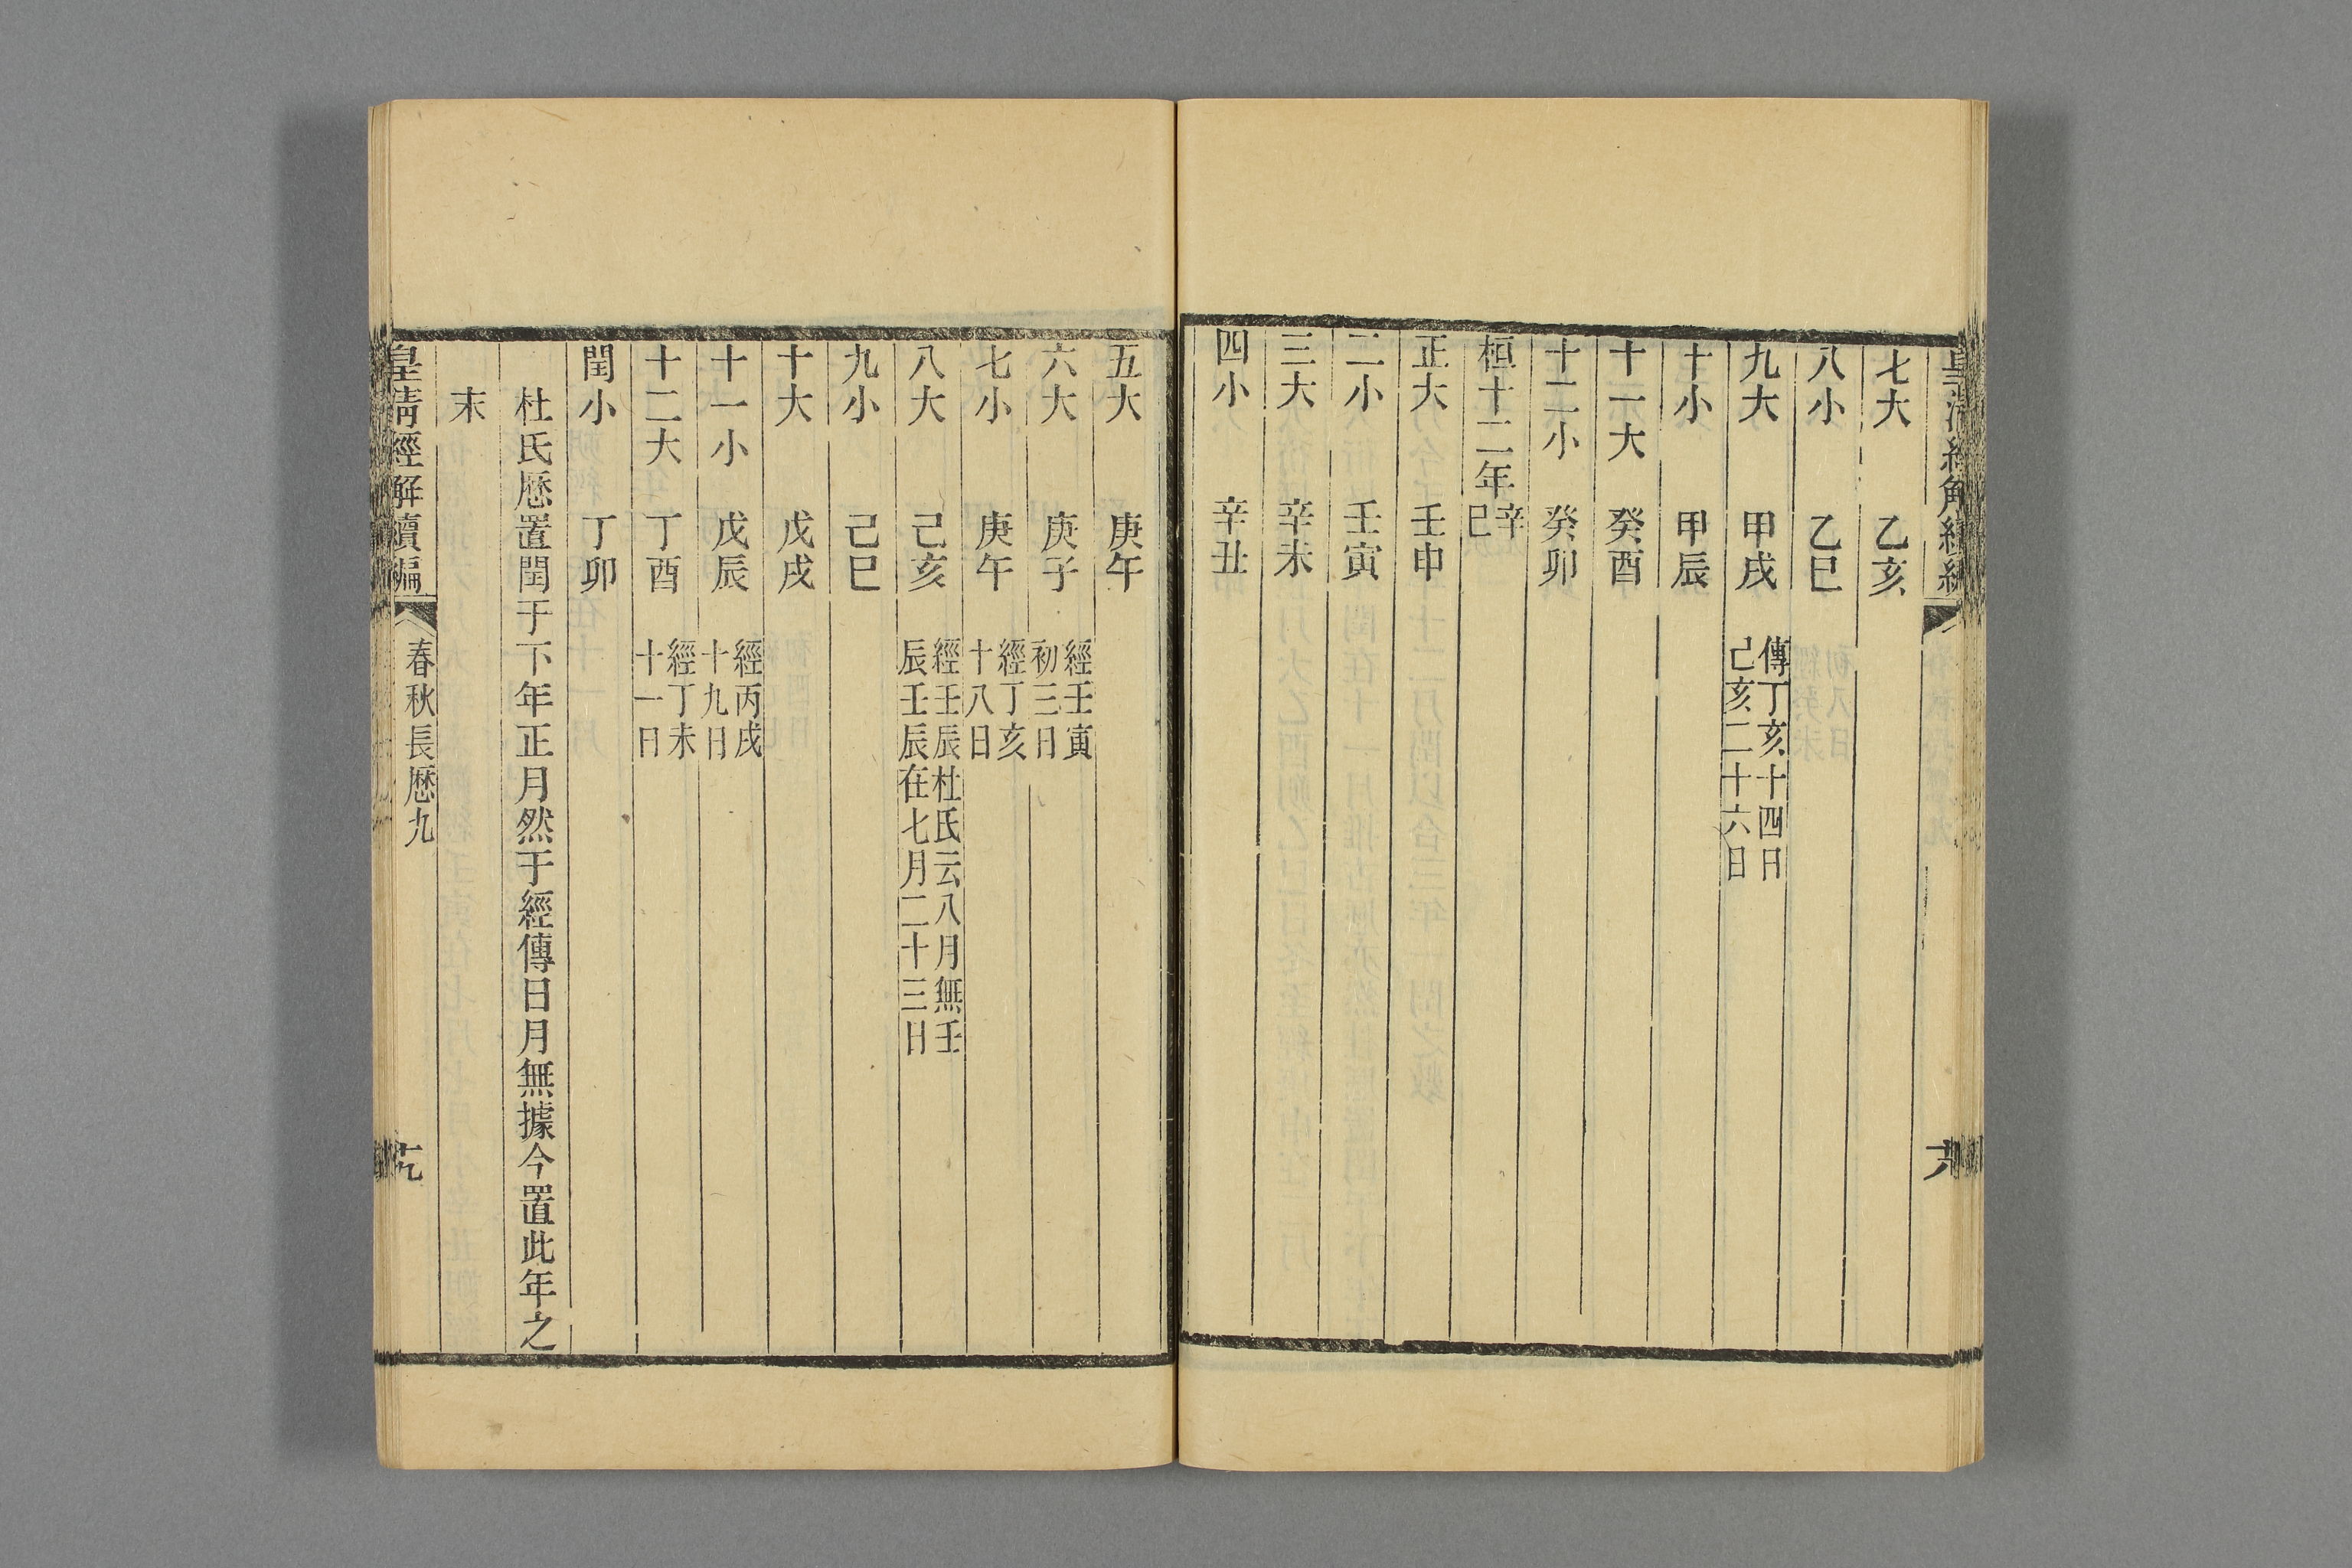 七大　乙亥
八小　乙巳
九大　甲戌　傳丁亥十四日
己亥二十六日
十小　甲辰
十一大　癸酉
十二小　癸卯
桓十二年辛
巳
正大　壬申
二小　壬寅
三大　辛未
四小　辛丑
五大　庚午
六大　庚子　經壬寅
初三日
七小　庚午　經丁亥
十八日
八大　己亥　經壬辰杜氏云八月無壬
辰壬辰在七月二十三日
九小　己巳
十大　戊戌
十一小　戊辰　經丙戌
十九日
十二大　丁酉　經丁未
十一日
閏小　丁卯
杜氏厯置閏于下年正月然于經傳日月無據今置此年之
末
皇清經解續編　春秋長厯九